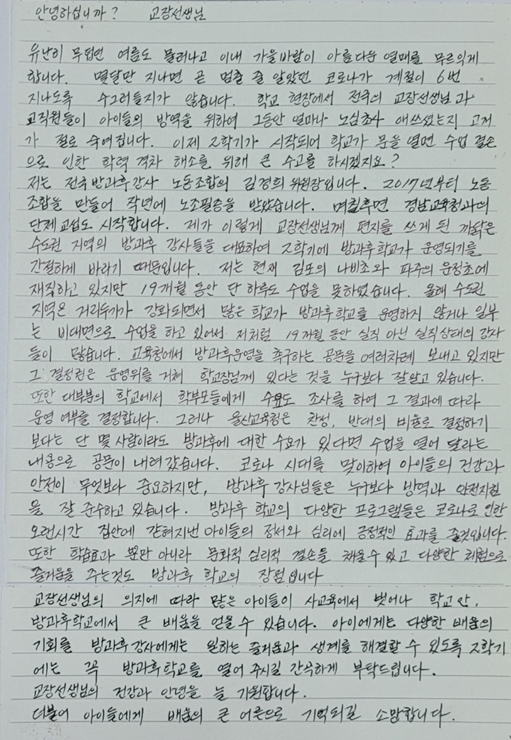 안녕하십니까? 교장선생님
유난히 무덥던 여름도 물러나고 이내 가을바람이 아름다운 열매를 무르익게
합니다. 몇달만 지나면 곧 멈출 줄 알았던 코로나가 계절이 6번
지나도록 수그러들지가 않습니다. 학교 현장에서 전국의 교장선생님과
교직원들이 아이들의 방역을 위하여 그동안 얼마나 노심초사 애쓰셨는지 고개
가 절로 숙여집니다. 이제 2학기가 시작되어 학교가 문을 열면 수업 결손
으로 인한 학력 격차 해소를 위해 큰 수고를 하시겠지요?
저는 전국방과후강사 노동조합의 김경희 위원장입니다. 2017년부터 노동
조합을 만들어 작년에 노조필증을 받았습니다. 며칠후면 경남교육청과의
단체교섭도 시작합니다. 제가 이렇게 교장선생님께 편지를 쓰게 된 까닭은
수도권 지역의 방과후 강사들을 대표하여 2학기에 방과후학교가 운영되기를
간절하게 바라기 때문입니다. 저는 현재 김포의 나비초와 파주의 운정초에
재직하고 있지만 19개월 동안 단 하루도 수업을 못하였습니다. 올해 수도권
지역은 거리두기가 강화되면서 많은 학교가 방과후학교를 운영하지 않거나 일부
는 비대면으로 수업을 하고 있어서 저처럼 19개월 동안 실직 아닌 실직상태의 강사
들이 많습니다. 교육청에서 방과후운영을 촉구하는 공문을 여러차례 보내고 있지만
그 결정권은 운영위를 거쳐 학교장님께 있다는 것을 누구보다 잘알고 있습니다.
또한 대부분의 학교에서 학부모들에게 수요도 조사를 하여 그 결과에 따라
운영 여부를 결정합니다. 그러나 울산교육청은 찬성, 반대의 비율로 결정하기
보다는 단 몇 사람이라도 방과후에 대한 수요가 있다면 수업을 열어 달라는
내용으로 공문이 내려갔습니다. 코로나 시대를 맞이하여 아이들의 건강과
안전이 무엇보다 중요하지만, 방과후 강사님들은 누구보다 방역과 안전지침
을 잘 준수하고 있습니다. 방과후 학교의 다양한 프로그램들은 코로나로 인한
오랜시간 집안에 갇혀지낸 아이들의 정서와 심리에 긍정적인 효과를 줄것입니다.
또한 학습효과 뿐만 아니라 문화적 심리적 결손을 채울수 있고 다양한 체험으로
즐거움을 주는것도 방과후 학교의 장점입니다
교장선생님의 의지에 따라 많은 아이들이 사교육에서 벗어나 학교안,
방과후학교에서 큰 배움을 얻을 수 있습니다. 아이에게는 다양한 배움의
기회를 방과후강사에게는 일하는 즐거움과 생계를 해결할 수 있도록 2학기
에는 꼭 방과후학교를 열어 주시길 간곡하게 부탁드립니다.
교장선생님의 건강과 안녕을 늘 기원합니다.
더불어 아이들에게 배움의 큰 어른으로 기억되길 소망합니다.